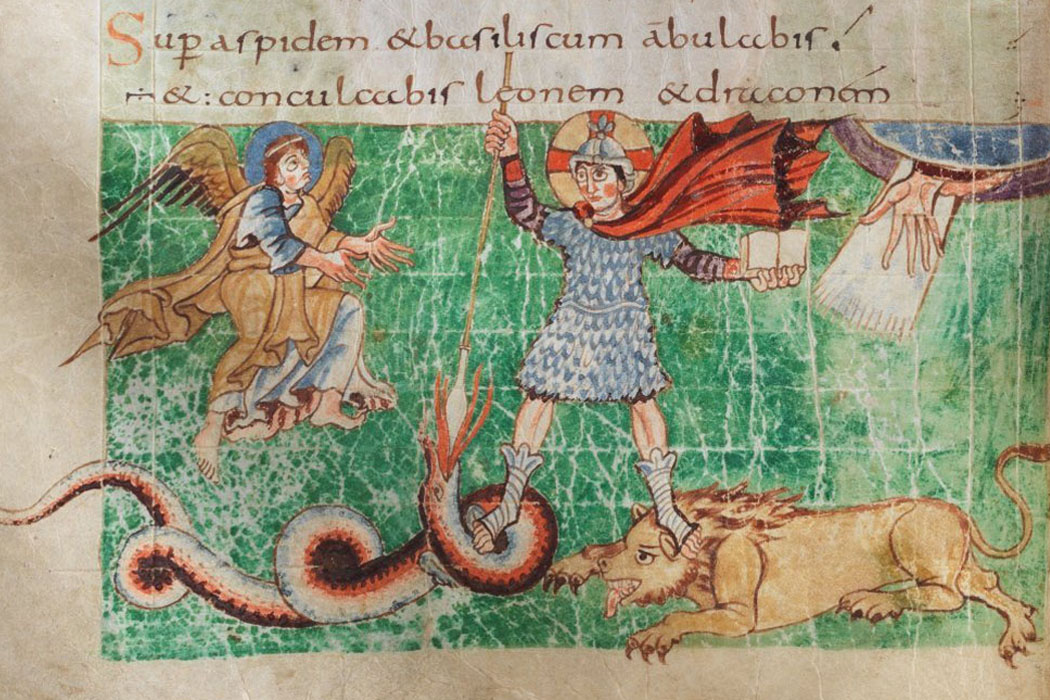 Sup aspidem & basiliscum ābulabis.
& conculcabis leonem & draconem